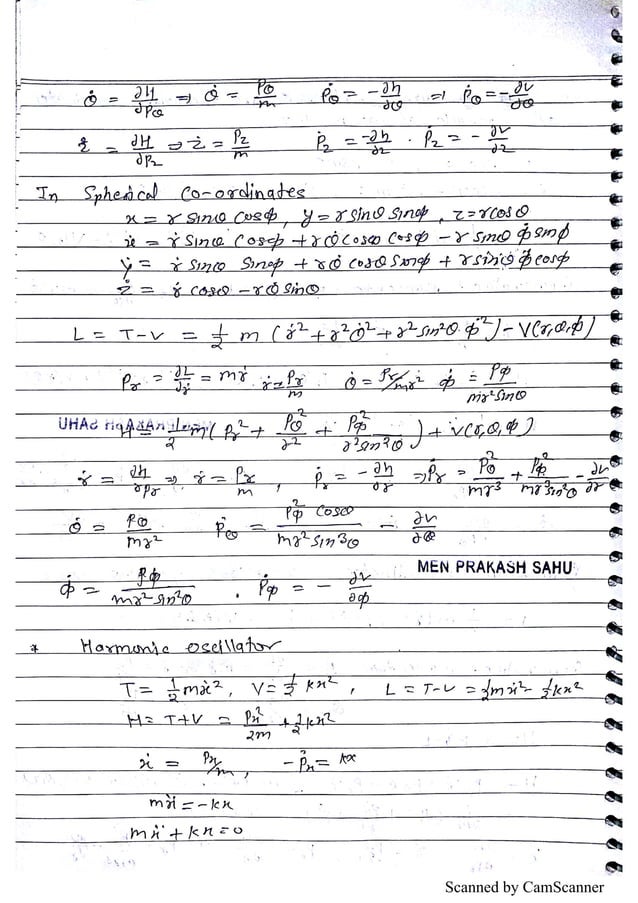 θ̇ = ∂H/∂Pθ ⇒ θ̇ = Pθ/m   Ṗθ = -∂h/∂θ ⇒ Ṗθ = -∂v/∂θ
ż = ∂H/∂Pz ⇒ ż = Pz/m   Ṗz = -∂h/∂z . Ṗz = -∂v/∂z
In Spherical Co-ordinates
x = r sinθ cosφ, y = r sinθ sinφ, z = r cosθ
ẋ = ṙ sinθ cosφ + rθ̇ cosθ cosφ - r sinθ φ̇ sinφ
ẏ = ṙ sinθ sinφ + rθ̇ cosθ sinφ + r sinθ φ̇ cosφ
ż = ṙ cosθ - rθ̇ sinθ
L = T-V = 1/2 m (ṙ² + r²θ̇² + r² sin²θ φ̇²) - V(r,θ,φ)
Pr = ∂L/∂ṙ = mṙ   ṙ = Pr/m   θ̇ = Pθ/mr²   φ̇ = Pφ/mr² sin²θ
H = 1/2 m (Pr² + Pθ²/r² + Pφ²/r² sin²θ) + V(r,θ,φ)
ṙ = ∂h/∂Pr ⇒ ṙ = Pr/m , Ṗr = -∂h/∂r ⇒ Ṗr = Pθ²/mr³ + Pφ²/mr³ sin²θ - ∂v/∂r
θ̇ = Pθ/mr²   Ṗθ = Pφ² cosθ/mr² sin³θ - ∂v/∂θ
MEN PRAKASH SAHU
φ̇ = Pφ/mr² sin²θ . Ṗφ = - ∂v/∂φ
* Harmonic oscillator
T = 1/2 mẋ², V = 1/2 kx² , L = T-V = 1/2 mẋ² - 1/2 kx²
H = T+V = Px²/2m + 1/2 kx²
ẋ = Px/m , -Ṗx = kx
mẍ = -kx
mẍ + kx = 0
Scanned by CamScanner